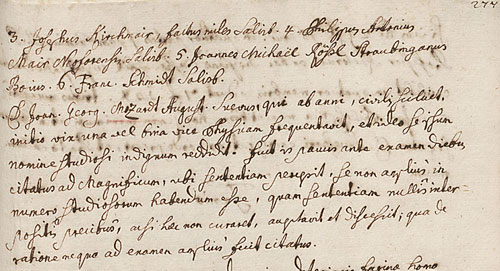 277
3. Josephus Kirchmair, factus miles Salisb. 4 Philippus Antonius
Mair Moforensis Salisb. 5 Joannes Michaël Rößl Straubinganus
Boius. 6 Franc. Schmidt Salisb.
D. Joan. Georg. Mozardt August. Suevus qui ab anni, civilis scilicet,
initio vix una vel bina vice Physicam frequentavit, et ideo se ipsum
nomine studiosi indignum reddidit. fuit is paucis ante examen diebus
citatus ad Magnificum, ubi sententiam percepit, se non amplius in
numero studiosorum habendum esse, quam sententiam nullis inter-
positis precibus, quasi haec non curaret, acceptavit et discessit; qua de
ratione neque ad examen amplius fuit citatus.
farina homo